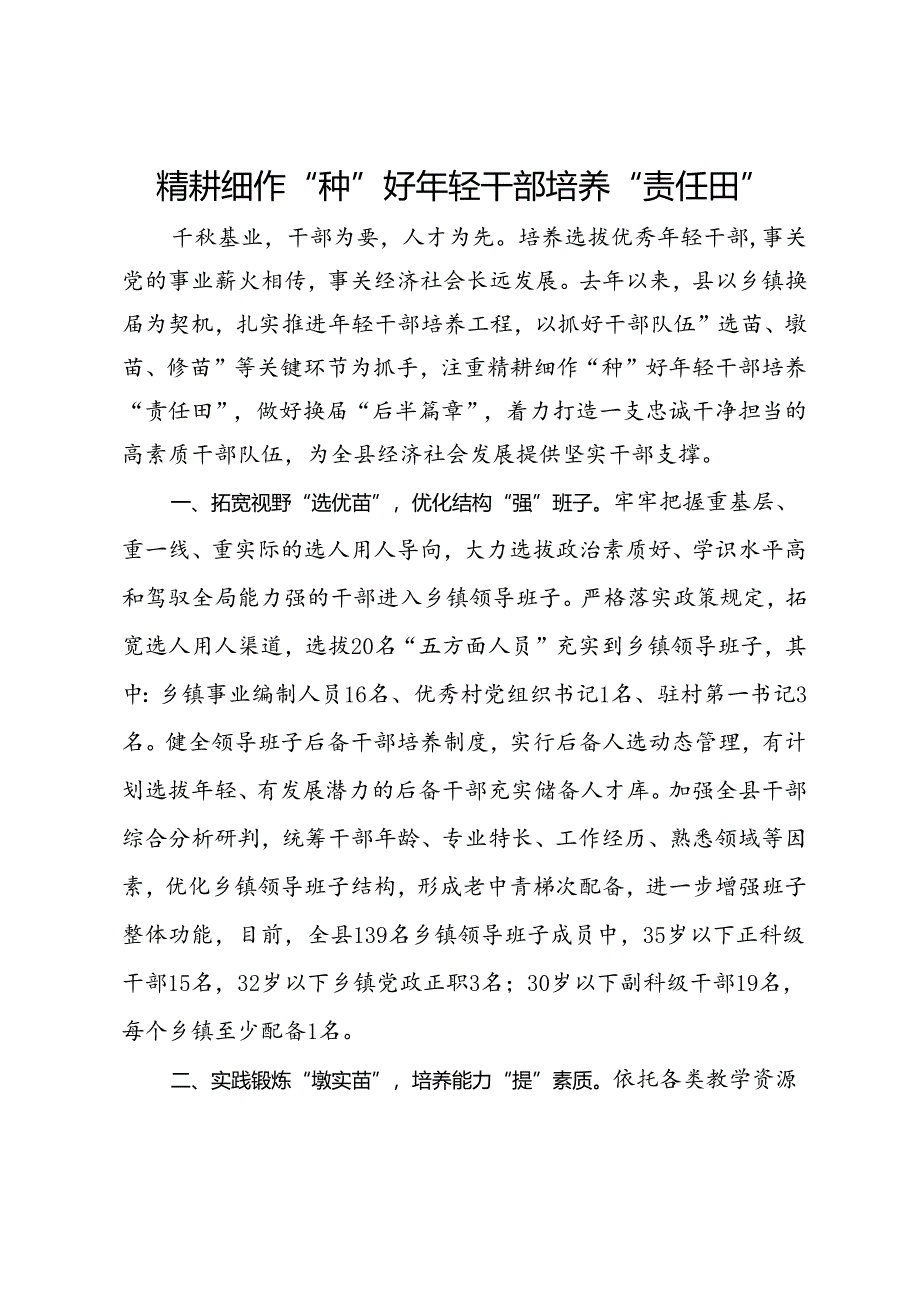 精耕细作“种”好年轻干部培养“责任田”
千秋基业，干部为要，人才为先。培养选拔优秀年轻干部,事关
党的事业薪火相传，事关经济社会长远发展。去年以来，县以乡镇换
届为契机，扎实推进年轻干部培养工程，以抓好干部队伍”选苗、墩
苗、修苗”等关键环节为抓手，注重精耕细作“种”好年轻干部培养
“责任田”，做好换届“后半篇章”，着力打造一支忠诚干净担当的
高素质干部队伍，为全县经济社会发展提供坚实干部支撑。
一、拓宽视野“选优苗”，优化结构“强”班子。牢牢把握重基层、
重一线、重实际的选人用人导向，大力选拔政治素质好、学识水平高
和驾驭全局能力强的干部进入乡镇领导班子。严格落实政策规定，拓
宽选人用人渠道，选拔20名“五方面人员”充实到乡镇领导班子，其
中：乡镇事业编制人员16名、优秀村党组织书记1名、驻村第一书记3
名。健全领导班子后备干部培养制度，实行后备人选动态管理，有计
划选拔年轻、有发展潜力的后备干部充实储备人才库。加强全县干部
综合分析研判，统筹干部年龄、专业特长、工作经历、熟悉领域等因
素，优化乡镇领导班子结构，形成老中青梯次配备，进一步增强班子
整体功能，目前，全县139名乡镇领导班子成员中，35岁以下正科级
干部15名，32岁以下乡镇党政正职3名；30岁以下副科级干部19名，
每个乡镇至少配备1名。
二、实践锻炼“墩实苗”，培养能力“提”素质。依托各类教学资源